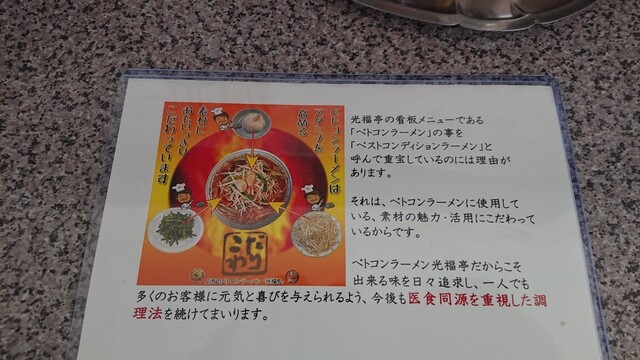 ベトコンラーメンは
スタミナを
高める
素材に
おもいっきり
こだわっています
こだわり
光福亭の看板メニューである
「ベトコンラーメン」の事を
「ベストコンディションラーメン」と
呼んで重宝しているのには理由が
あります。
それは、ベトコンラーメンに使用して
いる、素材の魅力・活用にこだわって
いるからです。
ベトコンラーメン光福亭だからこそ
出来る味を日々追求し、一人でも
多くのお客様に元気と喜びを与えられるよう、今後も医食同源を重視した調
理法を続けてまいります。